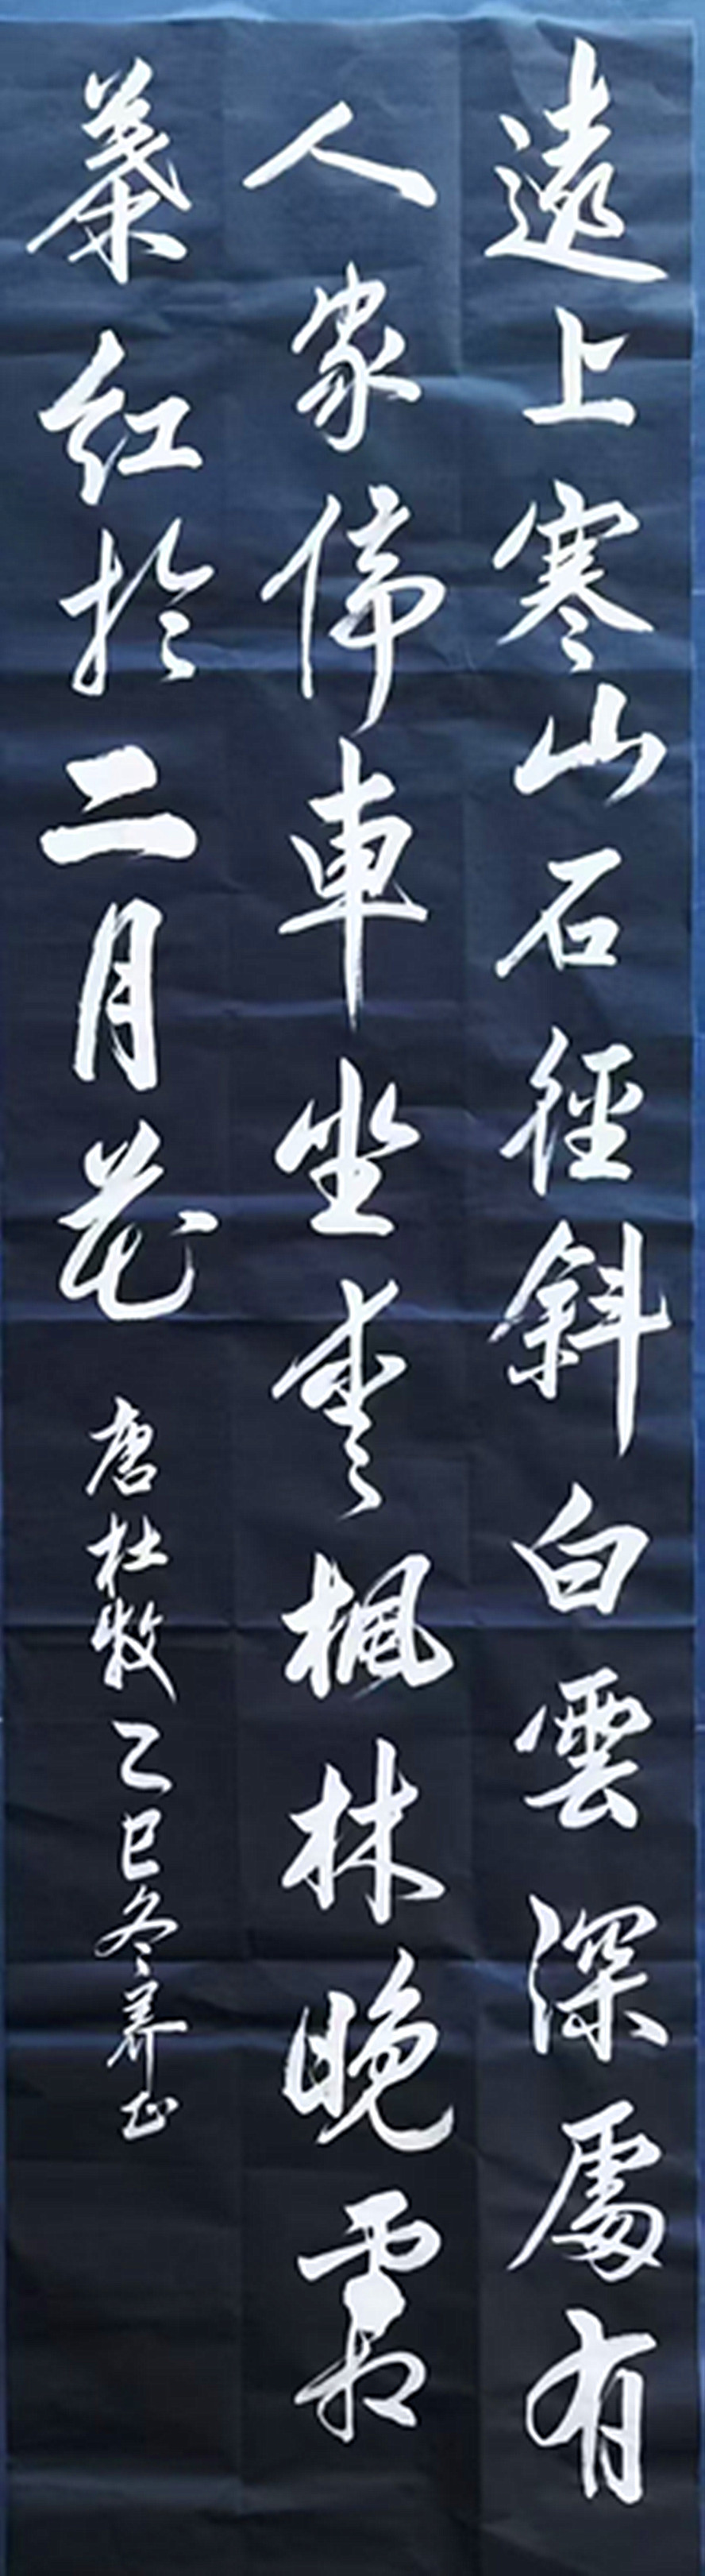 遠上寒山石徑斜白雲深處有
人家停車坐愛楓林晚霜
葉紅於二月花
唐杜牧乙巳冬養正